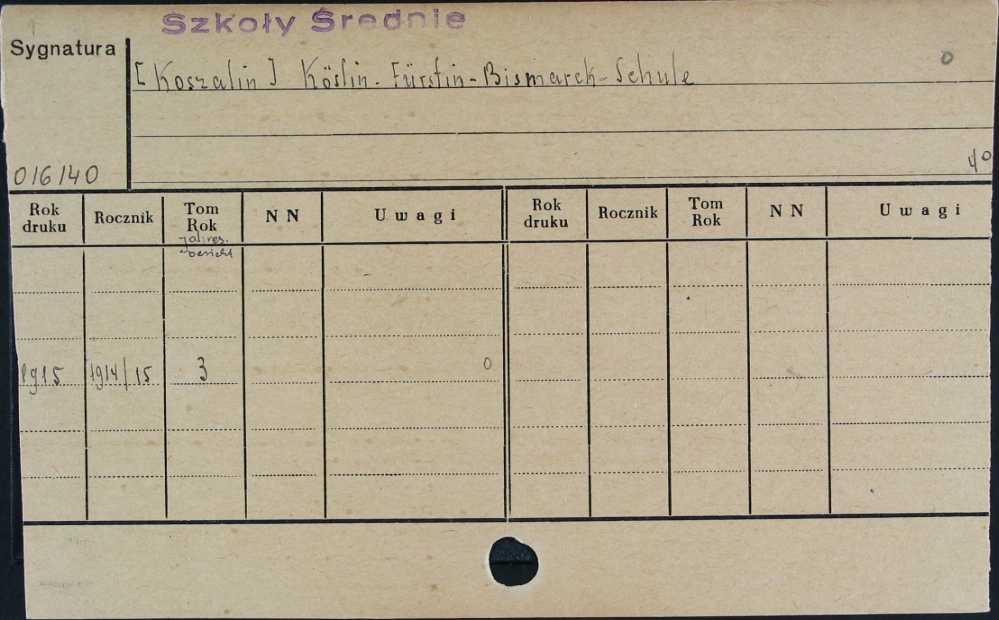 Szkoły Średnie
Sygnatura
[Koszalin] Köslin-Fürstin-Bismarck-Schule
0
016140
40
Rok druku Rocznik Tom Rok N N Uwagi Rok druku Rocznik Tom Rok N N Uwagi
Jahres-
bericht
1915 1914/15 3 0